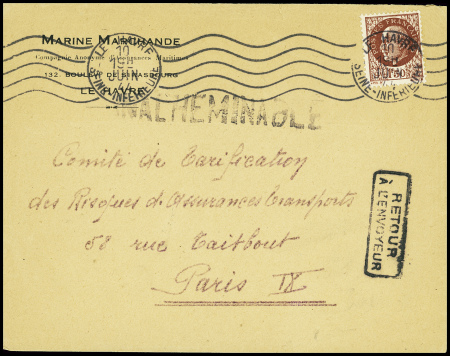 MARINE MARCHANDE
Compagnie Anonyme d'Assurances Maritimes
132, BOULEVARD DE STRASBOURG
LE HAVRE
LE HAVRE
10
JUIN
SEINE-INFERIEURE
LE HAVRE
10
SEINE-INFERIEURE
INACHEMINABLE
Comité de Tarification
des Risques d'Assurances transports
58 rue Taitbout
Paris IX
RETOUR
À L'ENVOYEUR